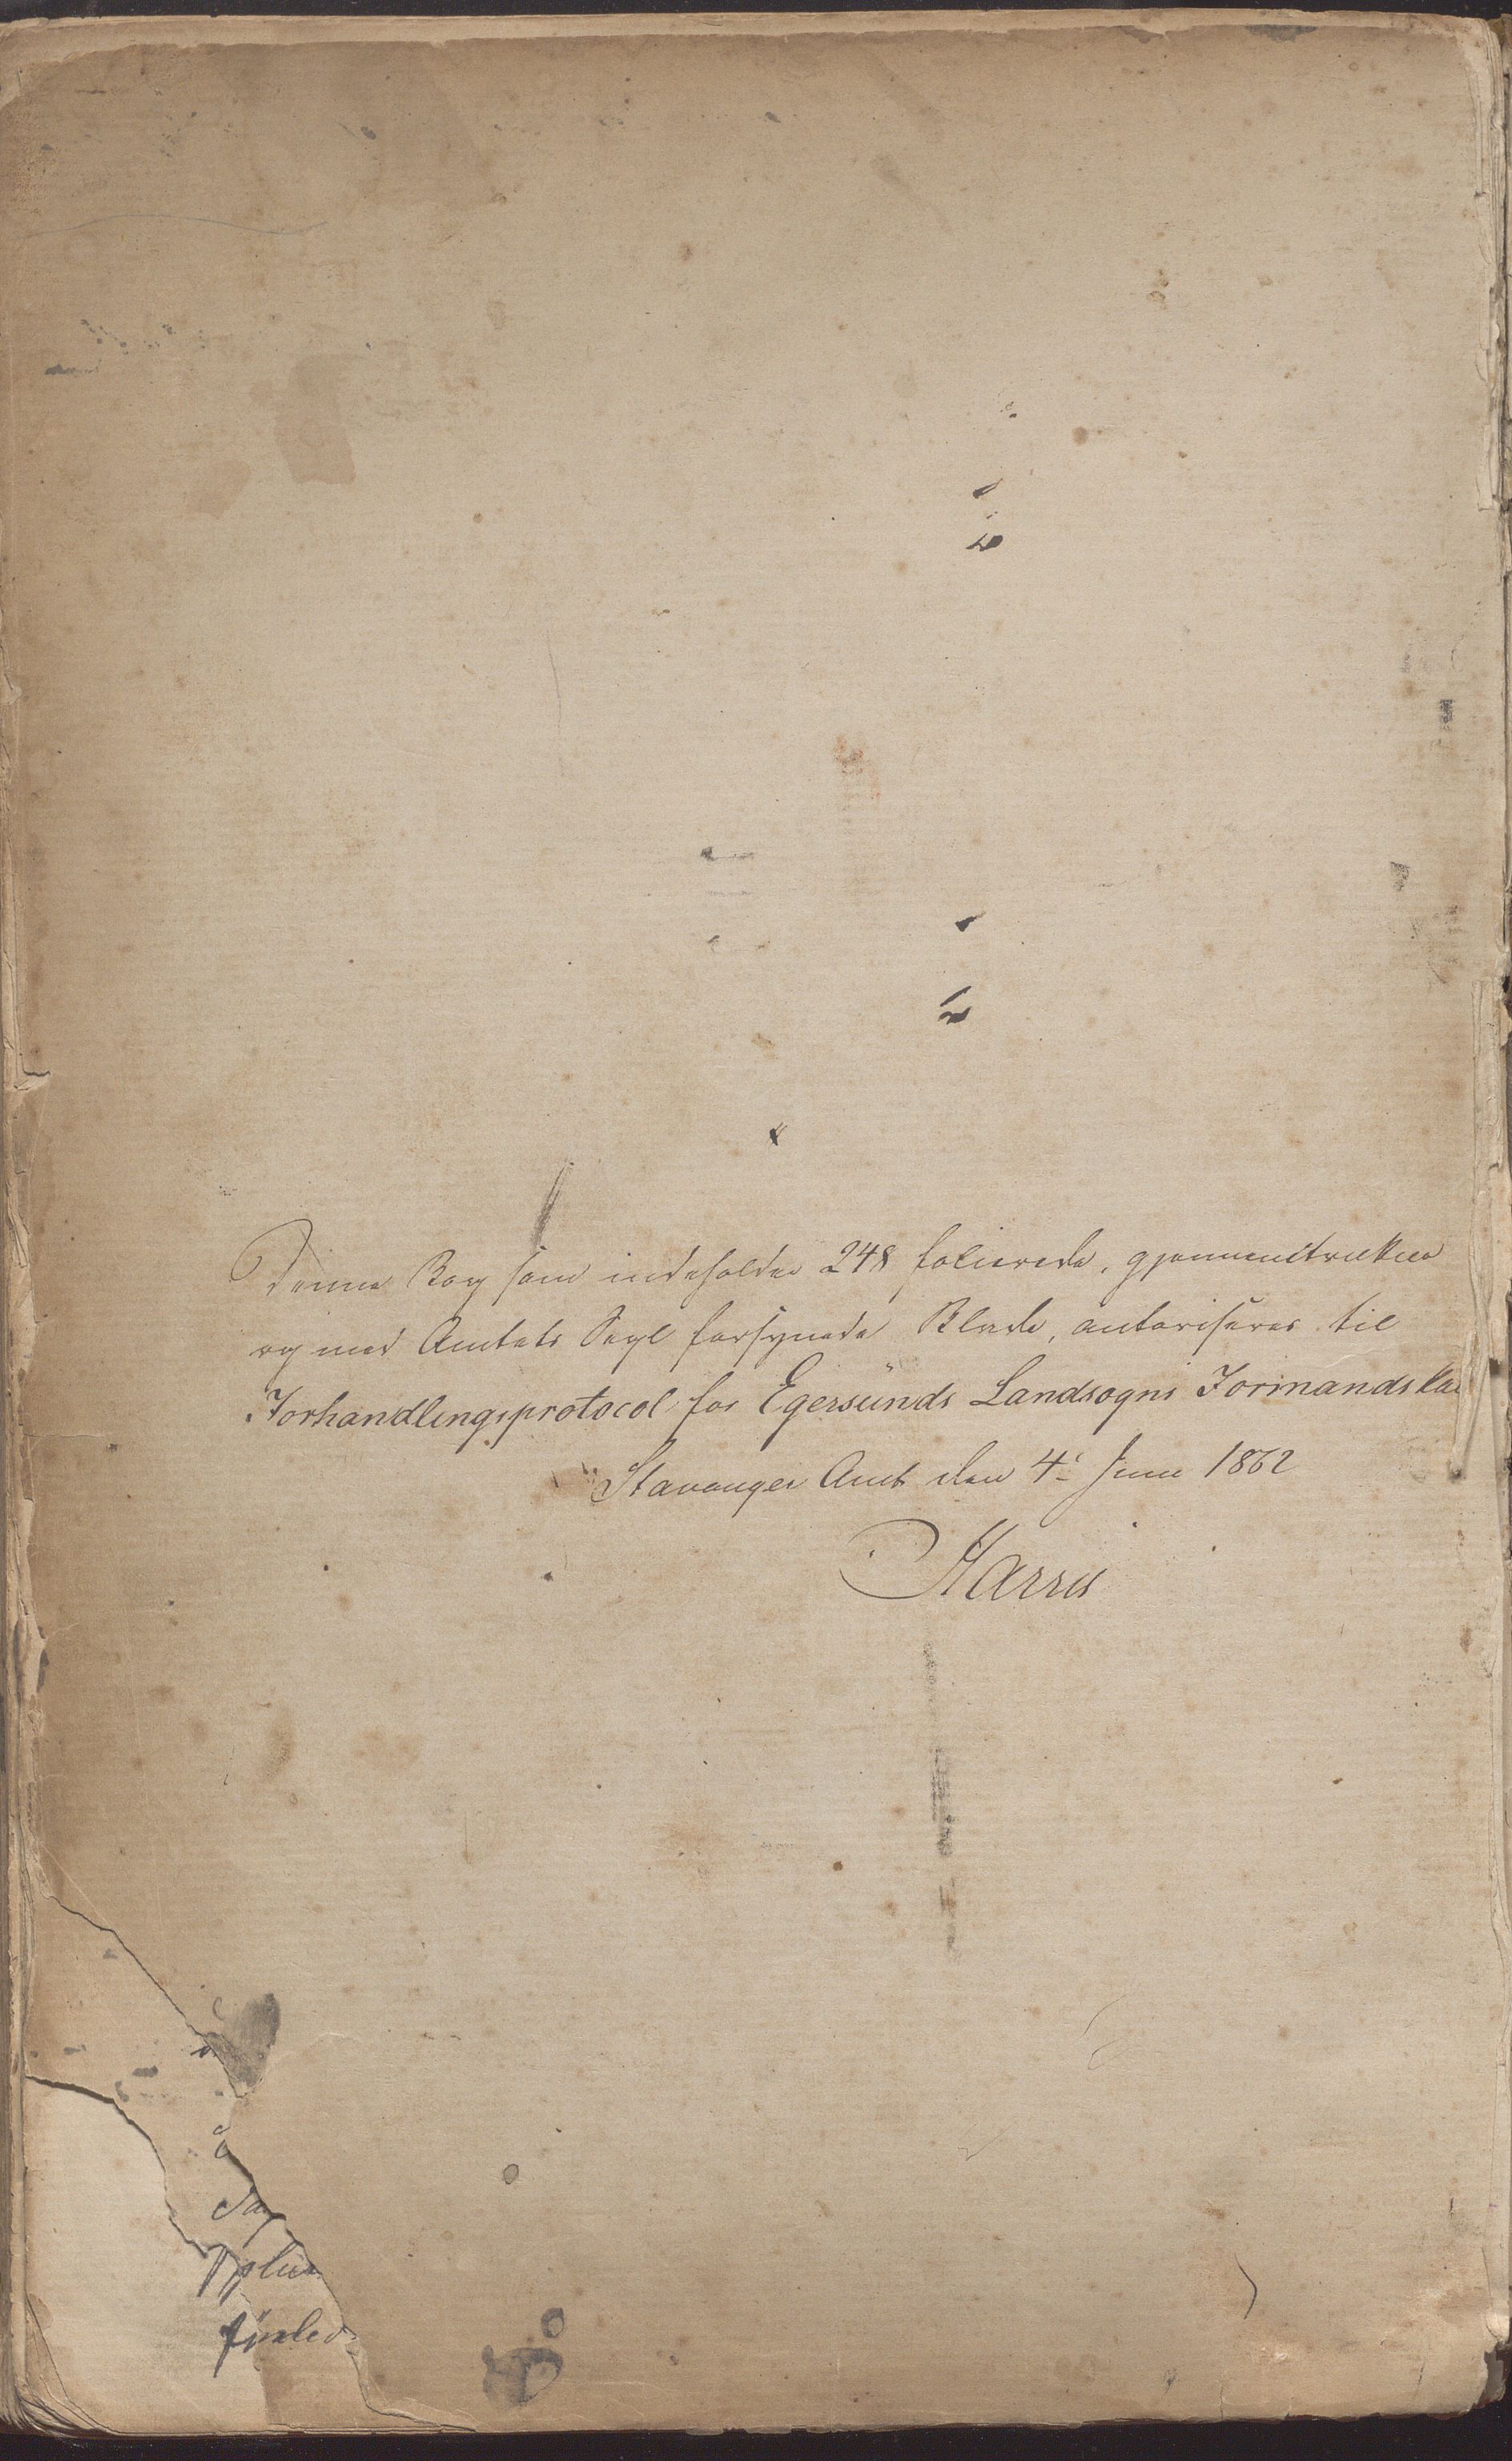 Denne Bog som indeholder 248 folierede, gjennemtrukne
og med Amtets Segl forsynede Blade, autoriseres til
Forhandlingsprotocol for Egersunds Landsogns Formandska
Stavanger Amt den 4de Juni 1862
Aarres